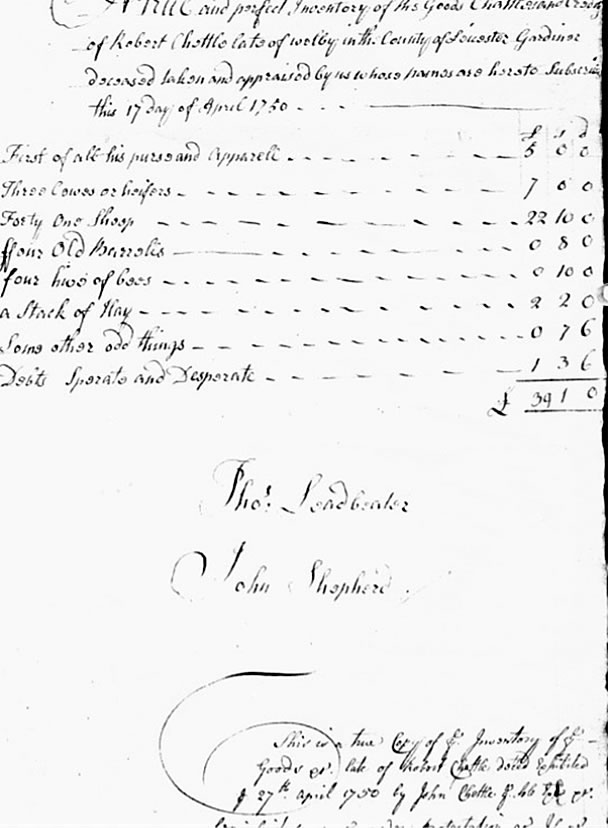 A True and perfect Inventory of the Goods Chattles and Creds
of Robert Chettle late of welby in the County of Leicester Gardiner
deceased taken and appraised by us whose names are hereto Subscrib
this 17 day of April 1750
£ s d
First of all his purse and Apparell 5 0 0
Three Cowes or heifers 7 0 0
Forty One Sheep 22 10 0
ffour Old Barrells 0 8 0
four hives of bees 0 10 0
a Stack of Hay 2 2 0
Some other odd things 0 7 6
Debts Sperate and Desperate 1 3 6
£ 39 1 0
Thos. Leadbeater
John Shepherd
This is a true Copy of ye. Inventory of ye.
Goods &c. late of Robert Chettle dated Exhibited
ye 27th April 1750 by John Chettle ye